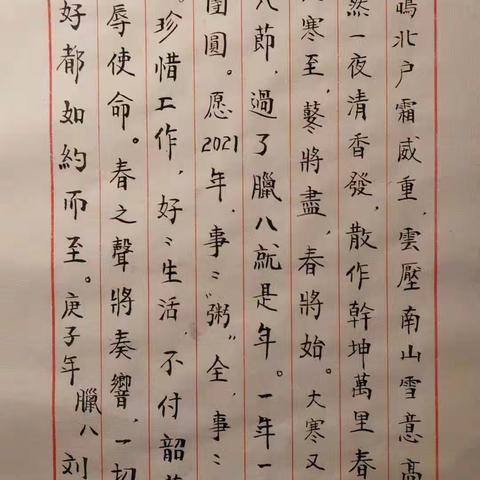 鳴北户霜威重，雲壓南山雪意高
然一夜清香發，散作幹坤萬里春
寒至，鼕將盡，春將始。大寒又
八節，過了臘八就是年。一年一
圓。愿2021年，事〻“粥”全，事〻
。珍惜工作，好〻生活，不付韶
辱使命。春之聲將奏響，一切
好都如約而至。庚子年臘八刘